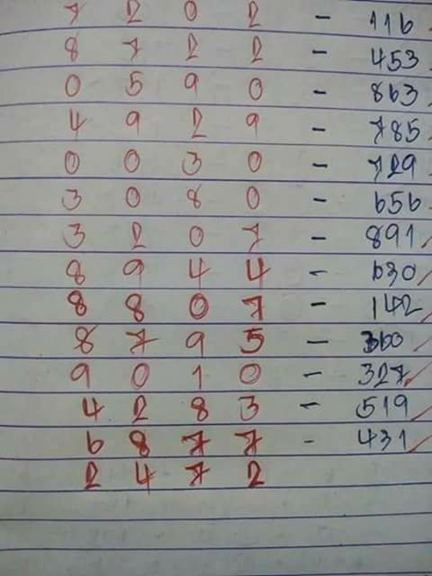 7 2 0 2 - 116
8 7 2 2 - 453
0 5 9 0 - 863
4 9 2 9 - 785
0 0 3 0 - 729
3 0 8 0 - 656
3 2 0 7 - 891
8 9 4 4 - 630
8 8 0 7 - 142
8 7 9 5 - 360
9 0 1 0 - 327
4 2 8 3 - 519
6 8 7 7 - 431
2 4 7 2